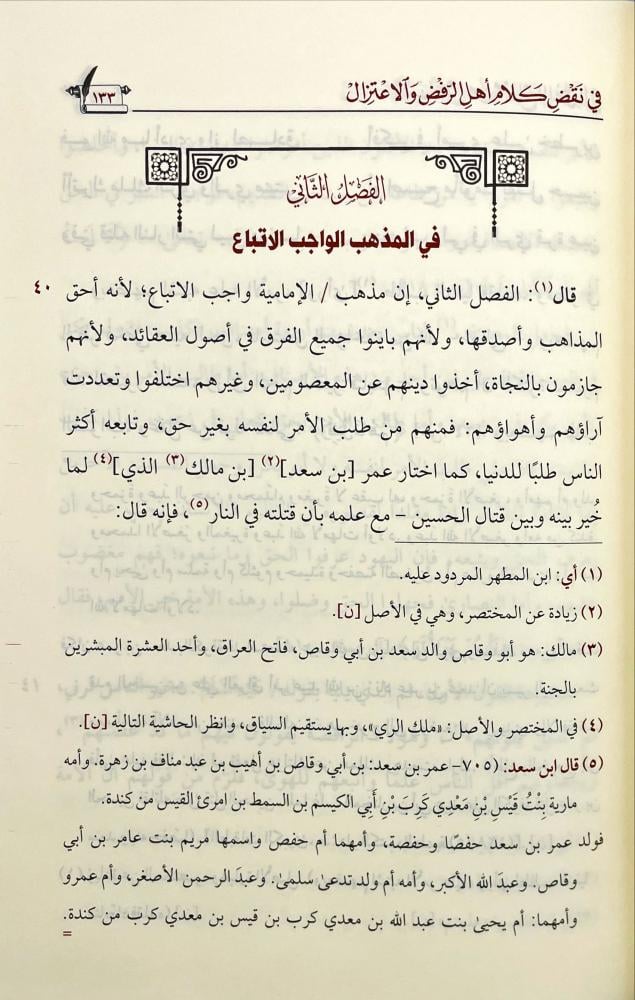 في نَقْضِ كَلَامِ أهلِ الرَفْضِ وَالاعْتِزَالِ
١٣٣
الفَصْلُ الثَّاني
في المذهب الواجب الاتباع
قال(١): الفصل الثاني، إن مذهب / الإمامية واجب الاتباع؛ لأنه أحق
٤٠
المذاهب وأصدقها، ولأنهم باينوا جميع الفرق في أصول العقائد، ولأنهم
جازمون بالنجاة، أخذوا دينهم عن المعصومين، وغيرهم اختلفوا وتعددت
آراؤهم وأهواؤهم: فمنهم من طلب الأمر لنفسه بغير حق، وتابعه أكثر
الناس طلبًا للدنيا، كما اختار عمر [بن سعد](٢) [بن مالك(٣) الذي](٤) لما
خُير بينه وبين قتال الحسين - مع علمه بأن قتلته في النار(٥)، فإنه قال:
(١) أي: ابن المطهر المردود عليه.
(٢) زيادة عن المختصر، وهي في الأصل [ن].
(٣) مالك: هو أبو وقاص والد سعد بن أبي وقاص، فاتح العراق، وأحد العشرة المبشرين
بالجنة.
(٤) في المختصر والأصل: «ملك الري»، وبها يستقيم السياق، وانظر الحاشية التالية [ن].
(٥) قال ابن سعد: (٧٠٥- عمر بن سعد: بن أبي وقاص بن أهيب بن عبد مناف بن زهرة. وأمه
مارية بِنْتُ قَيْسِ بْنِ مَعْدِي كَرِبَ بْنِ أَبِي الكيسم بن السمط بن امرئ القيس من كندة.
فولد عمر بن سعد حفصًا وحفصة، وأمهما أم حفص واسمها مريم بنت عامر بن أبي
وقاص. وعبدَ الله الأكبر، وأمه أم ولد تدعىٰ سلمىٰ. وعبدَ الرحمن الأصغر، وأم عمرو
وأمهما: أم يحيىٰ بنت عبد الله بن معدي كرب بن قيس بن معدي كرب من كندة.
=